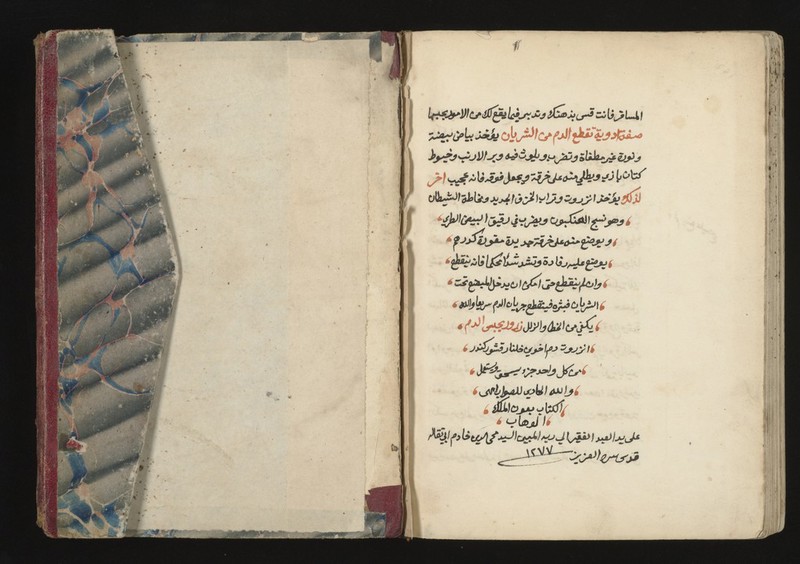 المسافر فانت قس بذهنك وتدبر فيما يقع لك من الامور بحبسها
صفة ادوية تقطع الدم من الشريان يؤخذ بياض بيضة
ونورة غير مطفاة وتضرب ويلوث فيه وبر الارنب وخيوط
كتان بازن ويطلي منه على خرقة ويجعل فوقه فانه عجيب اخر
لذلك يؤخذ انزروت وتراب الخزف الجديد ومخاطة الشيطان
وهو نسج العنكبوت ويضرب في رقيق البيض الطري
ويوضع منه على خرقة جديدة مقورة كدرهم
يوضع عليه رفادة وتشد شدا محكما فانه ينقطع
وان لم ينقطع حتى امكن ان يدخل المبضع تحت
الشريان فبتره فينقطع جريان الدم سريعا والله
يكفي من الخطا والزلل زرور يحبس الدم
انزروت دم اخوين جلنار قشور كندر
من كل واحد جزء يسحق ويستعمل
والله الهادي للصواب تمى
الكتاب بعون الملك
الوهاب
على يد العبد الفقير الى ربه المبين السيد محي الدين خادم
قدس سره العزيز ١٢٧٧